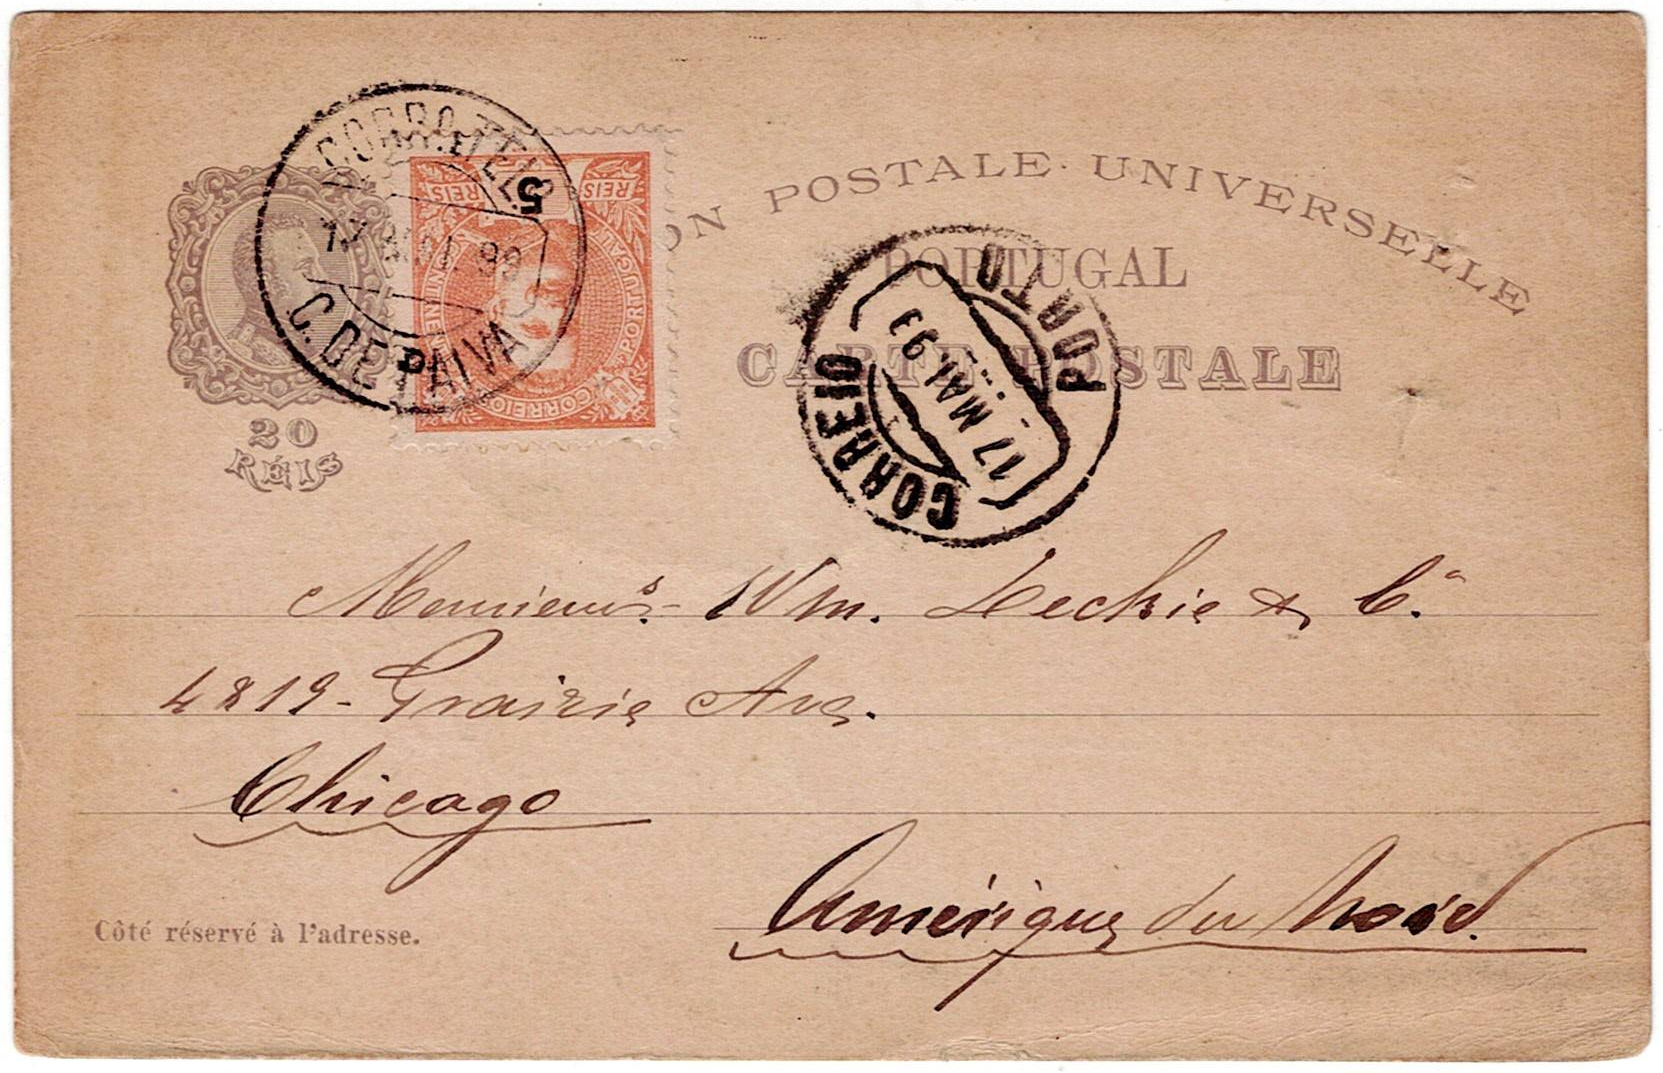 ON POSTALE UNIVERSELLE
PORTUGAL
CARTE POSTALE
20
RÉIS
CORRO E TELEG.
17 MAI. 99
C. DE PAIVA
5
REIS REIS
PORTUGAL
CONTINENTE
CORREIO
CORREIO
17 MAI. 99
PORTO
Messieurs. Wm. Leckie & C.ª
4219 - Prairie Ave.
Chicago
Amérique du Nord.
Côté réservé à l'adresse.